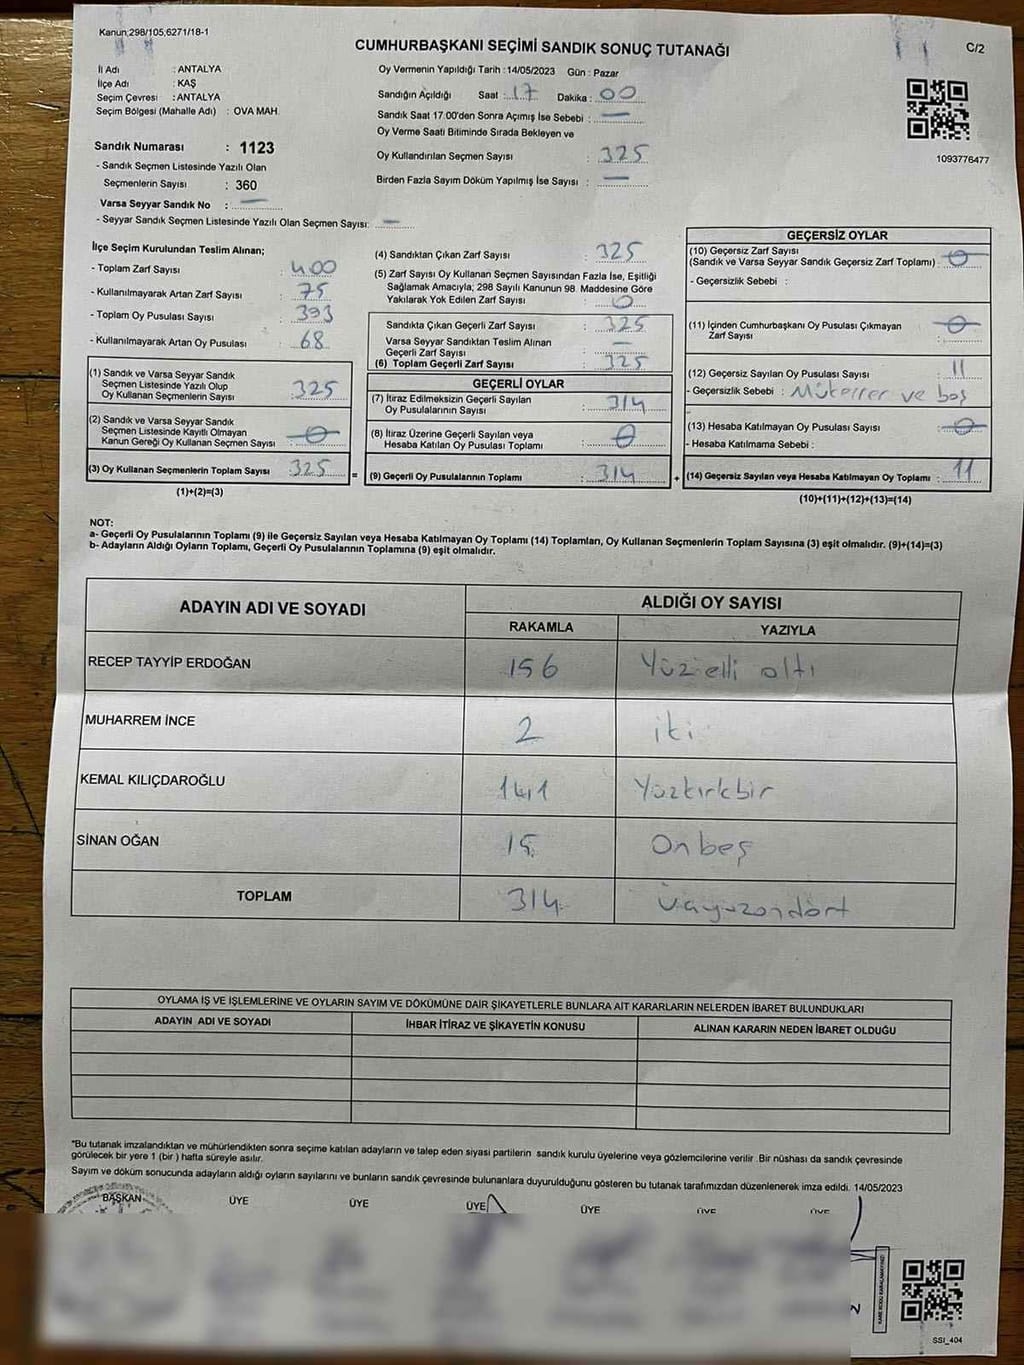 Kanun;298/105,6271/18-1
CUMHURBAŞKANI SEÇİMİ SANDIK SONUÇ TUTANAĞI
C/2
İl Adı : ANTALYA
İlçe Adı : KAŞ
Seçim Çevresi : ANTALYA
Seçim Bölgesi (Mahalle Adı) : OVA MAH.
Sandık Numarası : 1123
- Sandık Seçmen Listesinde Yazılı Olan
Seçmenlerin Sayısı : 360
Varsa Seyyar Sandık No : —
- Seyyar Sandık Seçmen Listesinde Yazılı Olan Seçmen Sayısı: —
Oy Vermenin Yapıldığı Tarih : 14/05/2023 Gün : Pazar
Sandığın Açıldığı Saat : 17 Dakika : 00
Sandık Saat 17.00'den Sonra Açımış İse Sebebi : —
Oy Verme Saati Bitiminde Sırada Bekleyen ve
Oy Kullandırılan Seçmen Sayısı : 325
Birden Fazla Sayım Döküm Yapılmış İse Sayısı : —
1093776477
İlçe Seçim Kurulundan Teslim Alınan;
- Toplam Zarf Sayısı : 400
- Kullanılmayarak Artan Zarf Sayısı : 75
- Toplam Oy Pusulası Sayısı : 393
- Kullanılmayarak Artan Oy Pusulası : 68
(1) Sandık ve Varsa Seyyar Sandık
Seçmen Listesinde Yazılı Olup
Oy Kullanan Seçmenlerin Sayısı : 325
(2) Sandık ve Varsa Seyyar Sandık
Seçmen Listesinde Kayıtlı Olmayan
Kanun Gereği Oy Kullanan Seçmen Sayısı : 0
(3) Oy Kullanan Seçmenlerin Toplam Sayısı : 325 =
(1)+(2)=(3)
(4) Sandıktan Çıkan Zarf Sayısı : 325
(5) Zarf Sayısı Oy Kullanan Seçmen Sayısından Fazla İse, Eşitliği
Sağlamak Amacıyla; 298 Sayılı Kanunun 98. Maddesine Göre
Yakılarak Yok Edilen Zarf Sayısı : 0
Sandıkta Çıkan Geçerli Zarf Sayısı : 325
Varsa Seyyar Sandıktan Teslim Alınan
Geçerli Zarf Sayısı : —
(6) Toplam Geçerli Zarf Sayısı : 325
GEÇERLİ OYLAR
(7) İtiraz Edilmeksizin Geçerli Sayılan
Oy Pusulalarının Sayısı : 314
(8) İtiraz Üzerine Geçerli Sayılan veya
Hesaba Katılan Oy Pusulası Toplamı : 0
(9) Geçerli Oy Pusulalarının Toplamı : 314 +
GEÇERSİZ OYLAR
(10) Geçersiz Zarf Sayısı
(Sandık ve Varsa Seyyar Sandık Geçersiz Zarf Toplamı) : 0
- Geçersizlik Sebebi :
(11) İçinden Cumhurbaşkanı Oy Pusulası Çıkmayan
Zarf Sayısı : 0
(12) Geçersiz Sayılan Oy Pusulası Sayısı : 11
- Geçersizlik Sebebi : Mükerrer ve boş
(13) Hesaba Katılmayan Oy Pusulası Sayısı : 0
- Hesaba Katılmama Sebebi :
(14) Geçersiz Sayılan veya Hesaba Katılmayan Oy Toplamı : 11
(10)+(11)+(12)+(13)=(14)
NOT:
a- Geçerli Oy Pusulalarının Toplamı (9) ile Geçersiz Sayılan veya Hesaba Katılmayan Oy Toplamı (14) Toplamları, Oy Kullanan Seçmenlerin Toplam Sayısına (3) eşit olmalıdır. (9)+(14)=(3)
b- Adayların Aldığı Oyların Toplamı, Geçerli Oy Pusulalarının Toplamına (9) eşit olmalıdır.
ADAYIN ADI VE SOYADI
ALDIĞI OY SAYISI
RAKAMLA YAZIYLA
RECEP TAYYİP ERDOĞAN 156 Yüzelli altı
MUHARREM İNCE 2 iki
KEMAL KILIÇDAROĞLU 141 Yüzkırkbir
SİNAN OĞAN 15 Onbeş
TOPLAM 314 üçyüzondört
OYLAMA İŞ VE İŞLEMLERİNE VE OYLARIN SAYIM VE DÖKÜMÜNE DAİR ŞİKAYETLERLE BUNLARA AİT KARARLARIN NELERDEN İBARET BULUNDUKLARI
ADAYIN ADI VE SOYADI İHBAR İTİRAZ VE ŞİKAYETİN KONUSU ALINAN KARARIN NEDEN İBARET OLDUĞU
*Bu tutanak imzalandıktan ve mühürlendikten sonra seçime katılan adayların ve talep eden siyasi partilerin sandık kurulu üyelerine veya gözlemcilerine verilir. Bir nüshası da sandık çevresinde
görülecek bir yere 1 (bir ) hafta süreyle asılır.
Sayım ve döküm sonucunda adayların aldığı oyların sayılarını ve bunların sandık çevresinde bulunanlara duyurulduğunu gösteren bu tutanak tarafımızdan düzenlenerek imza edildi. 14/05/2023
BAŞKAN ÜYE ÜYE ÜYE ÜYE ÜYE ÜYE
KARE KODU KARALAMAYINIZ!
SSI_404